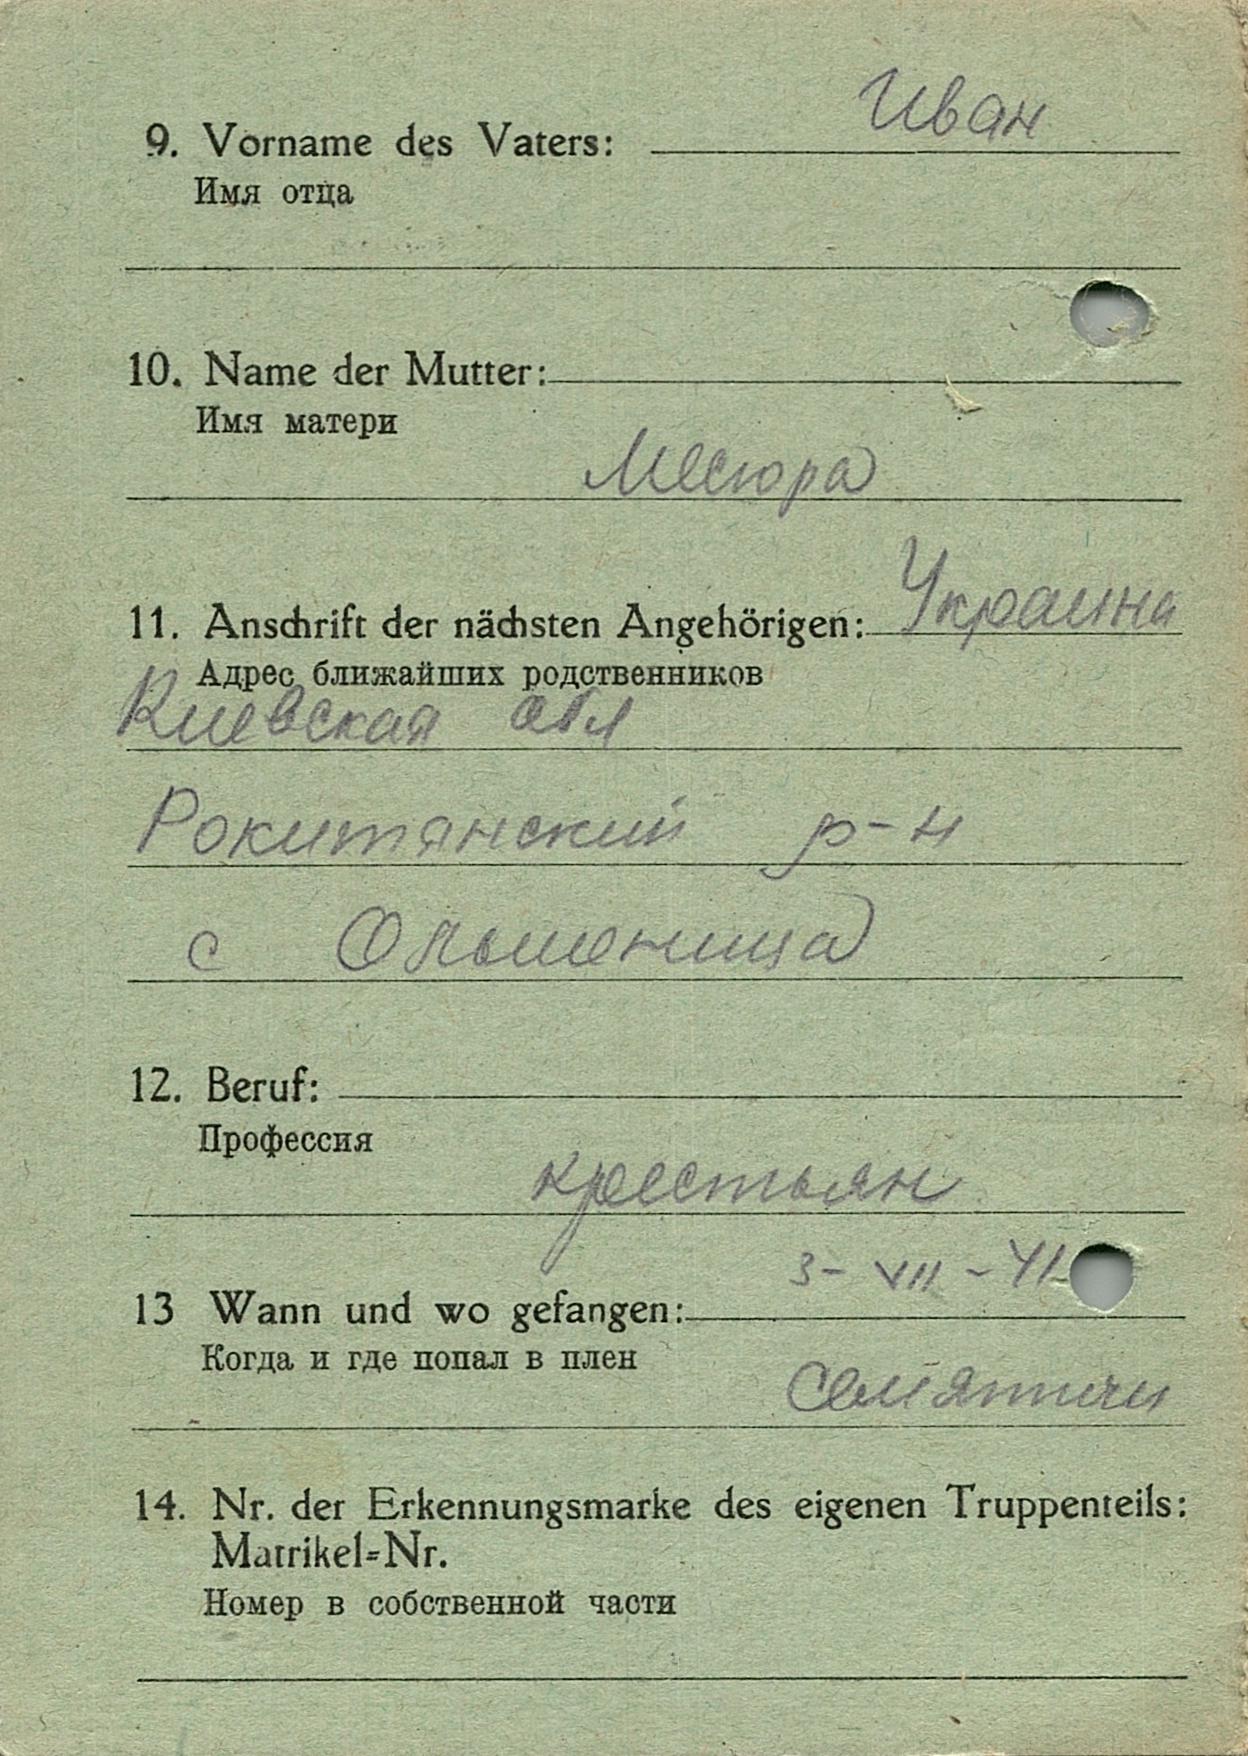 Иван
9. Vorname des Vaters:
Имя отца
10. Name der Mutter:
Имя матери
Месюра
11. Anschrift der nächsten Angehörigen: Украина
Адрес ближайших родственников
Киевская обл
Рокитянский р-н
с Ольшеница
12. Beruf:
Профессия
крестьян
13 Wann und wo gefangen: 3-VII-41
Когда и где попал в плен
Семятичи
14. Nr. der Erkennungsmarke des eigenen Truppenteils:
Matrikel=Nr.
Номер в собственной части